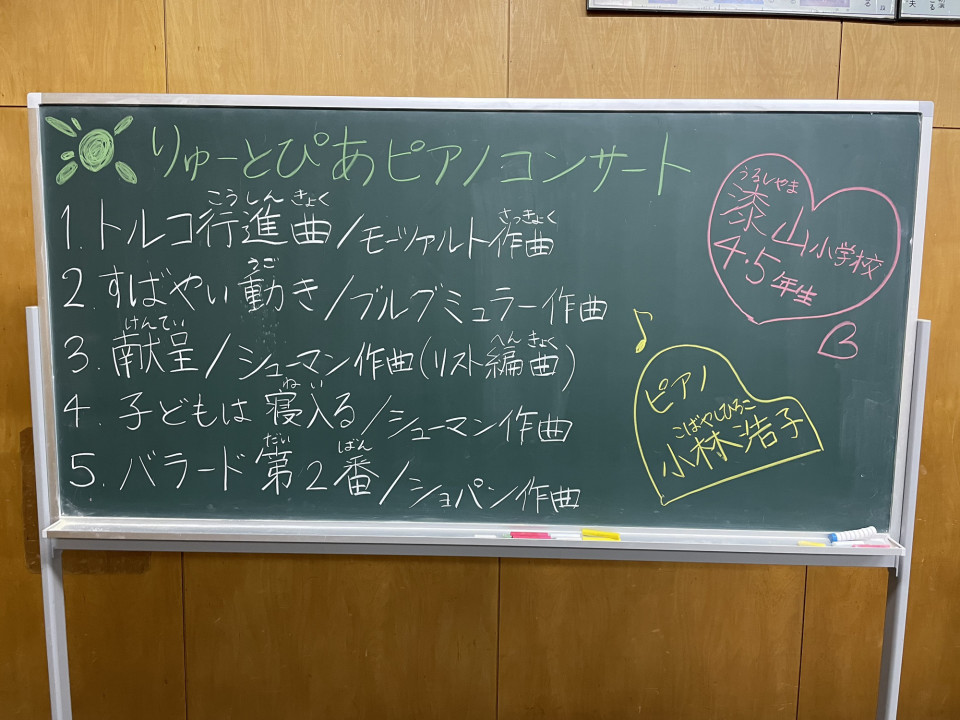 りゅーとぴあピアノコンサート
こうしんきょく
さっきょく
1.トルコ行進曲/モーツァルト作曲
うご
2.すばやい動き/ブルグミュラー作曲
けんてい
へんきょく
3.献呈/シューマン作曲(リスト編曲)
ねい
4.子どもは寝入る/シューマン作曲
だい ばん
5.バラード第2番/ショパン作曲
うるしやま
漆山小学校
4・5年生
ピアノ
こばやしひろこ
小林浩子